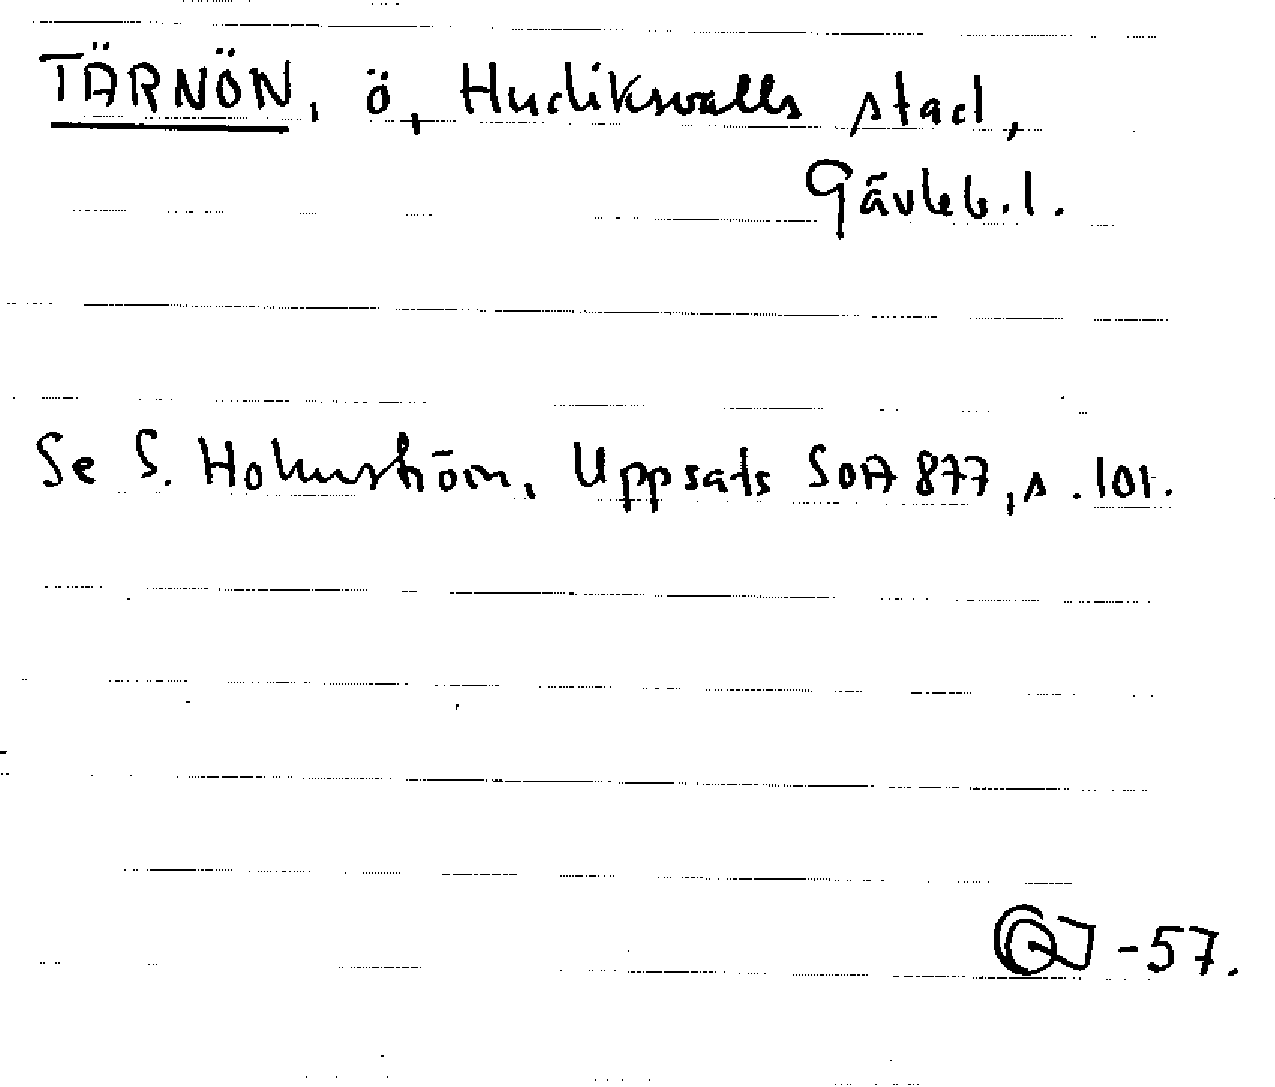 TÄRNÖN, ö, Hudiksvalls stad,
Gävleb. l.
Se S. Holmström, Uppsats SOA 877, s. 101.
-57.